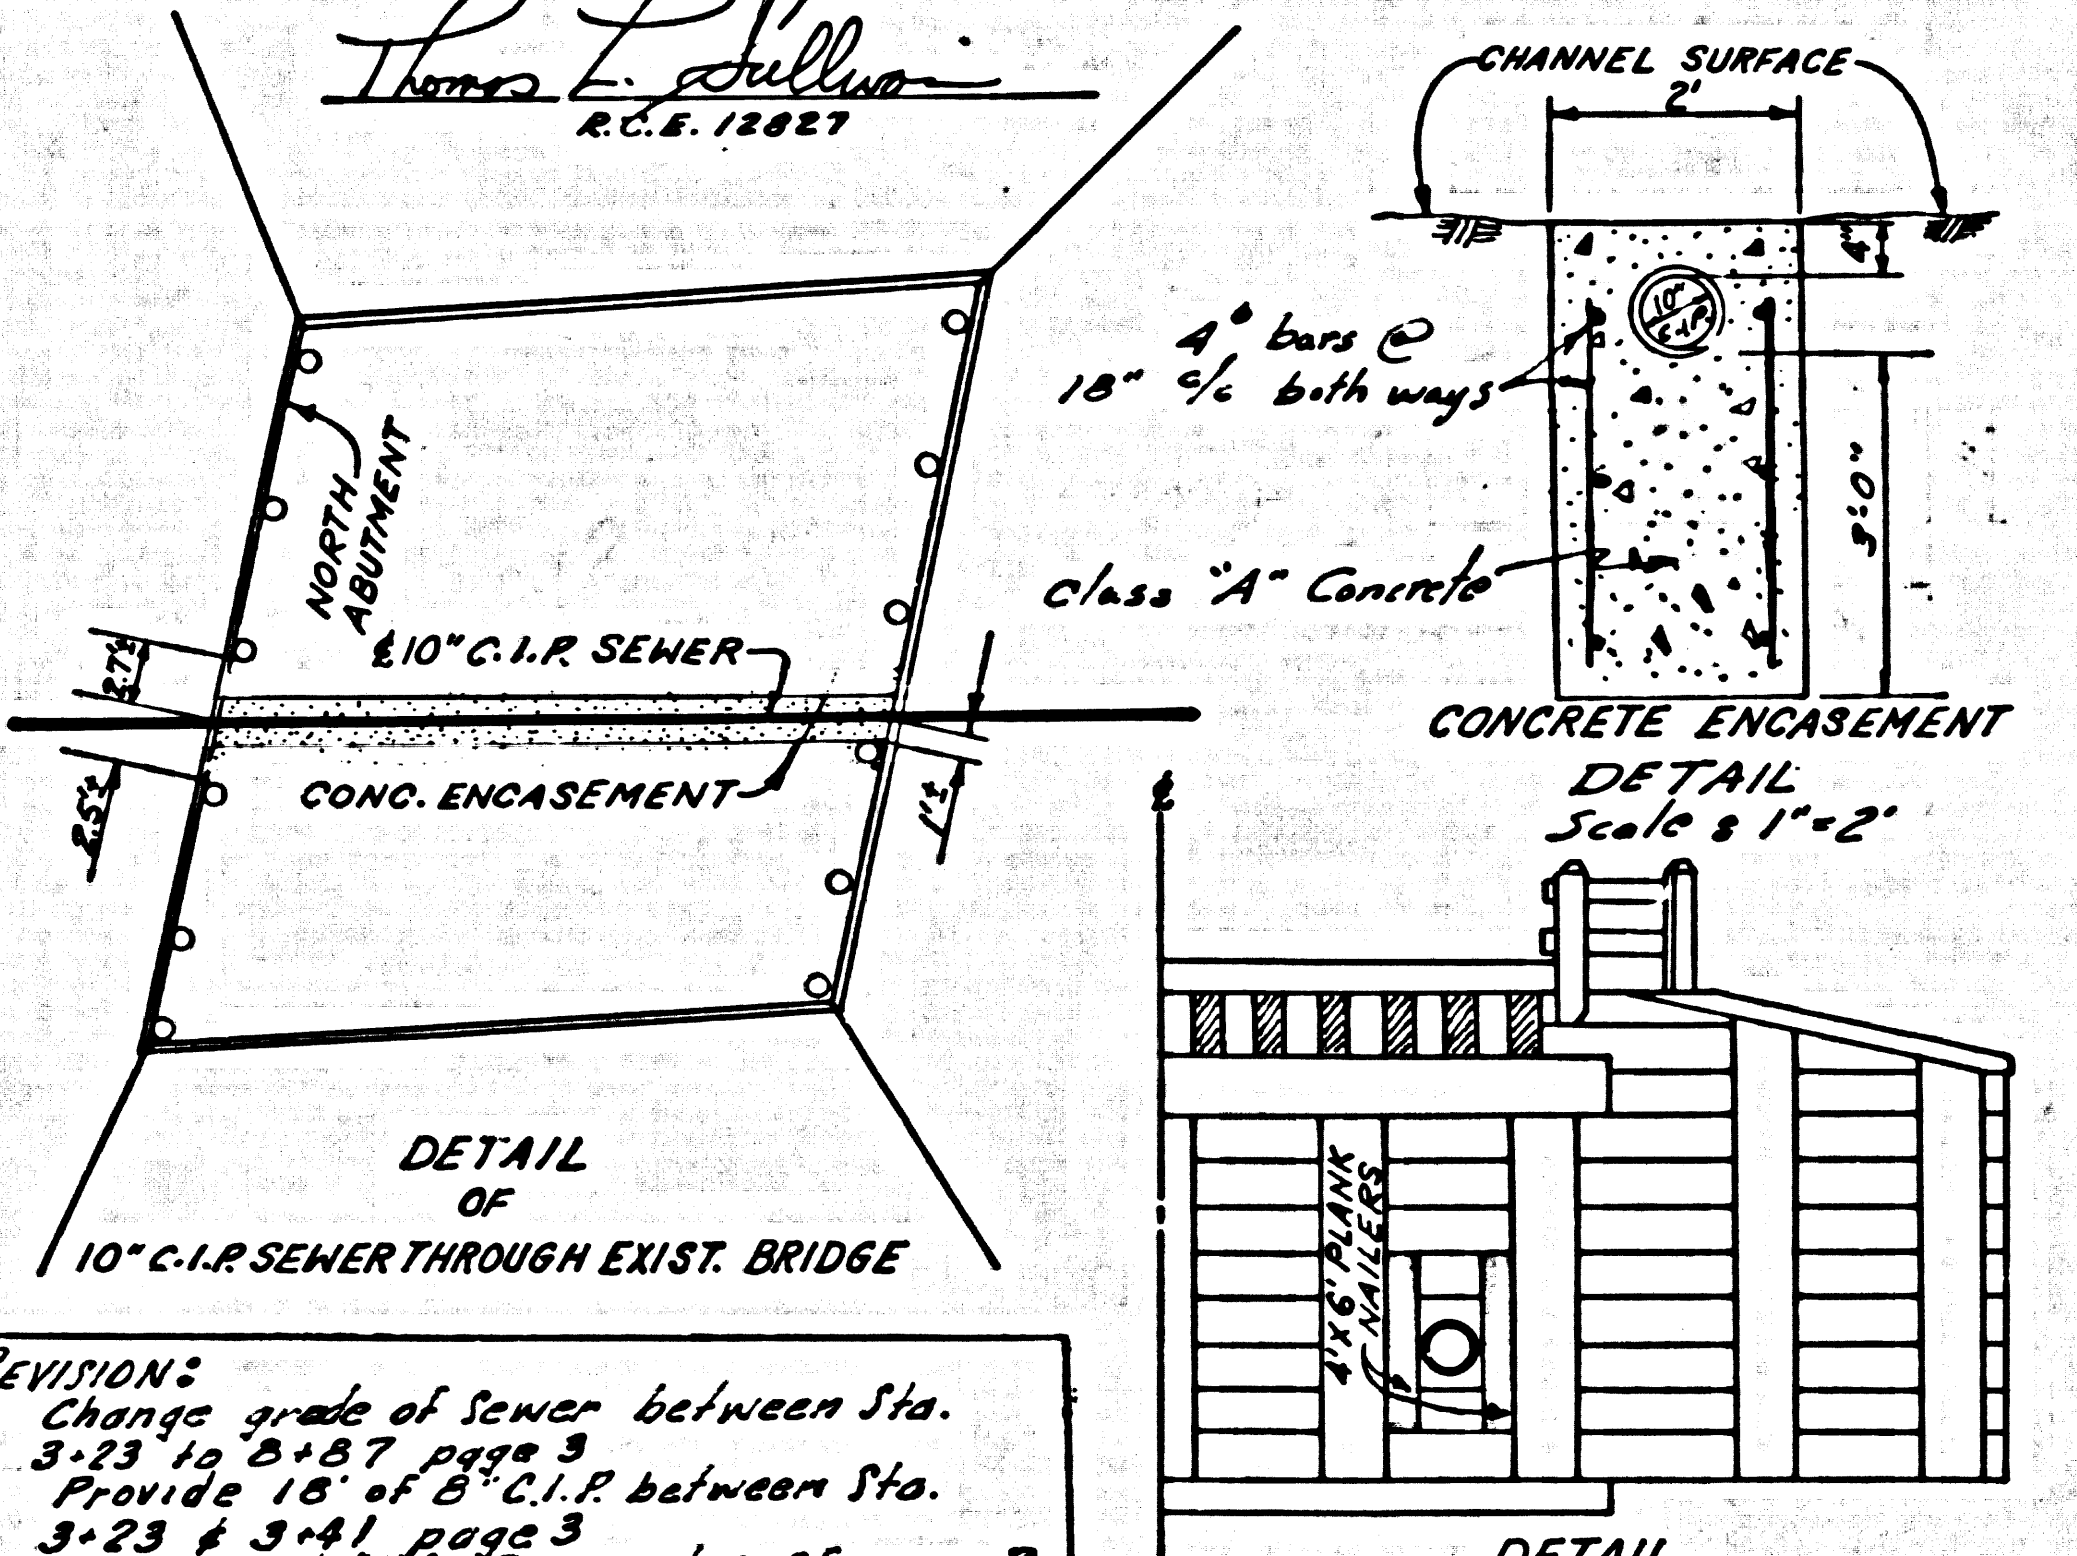 Thomas E. Sullivan
R.C.E. 12827
CHANNEL SURFACE
2'
4"
10"
C.I.P.
4° bars @
18" c/c both ways
3'-0"
Class "A" Concrete
CONCRETE ENCASEMENT
DETAIL
Scale : 1"=2'
NORTH
ABUTMENT
℄ 10" C.I.P. SEWER
2.7'±
2.5'±
1'±
CONC. ENCASEMENT
℄
DETAIL
OF
10" C.I.P. SEWER THROUGH EXIST. BRIDGE
4'X6' PLANK
NAILERS
REVISION:
Change grade of Sewer between Sta.
3+23 to 8+87 page 3
Provide 18' of 8" C.I.P. between Sta.
3+23 & 3+41 page 3
DETAIL